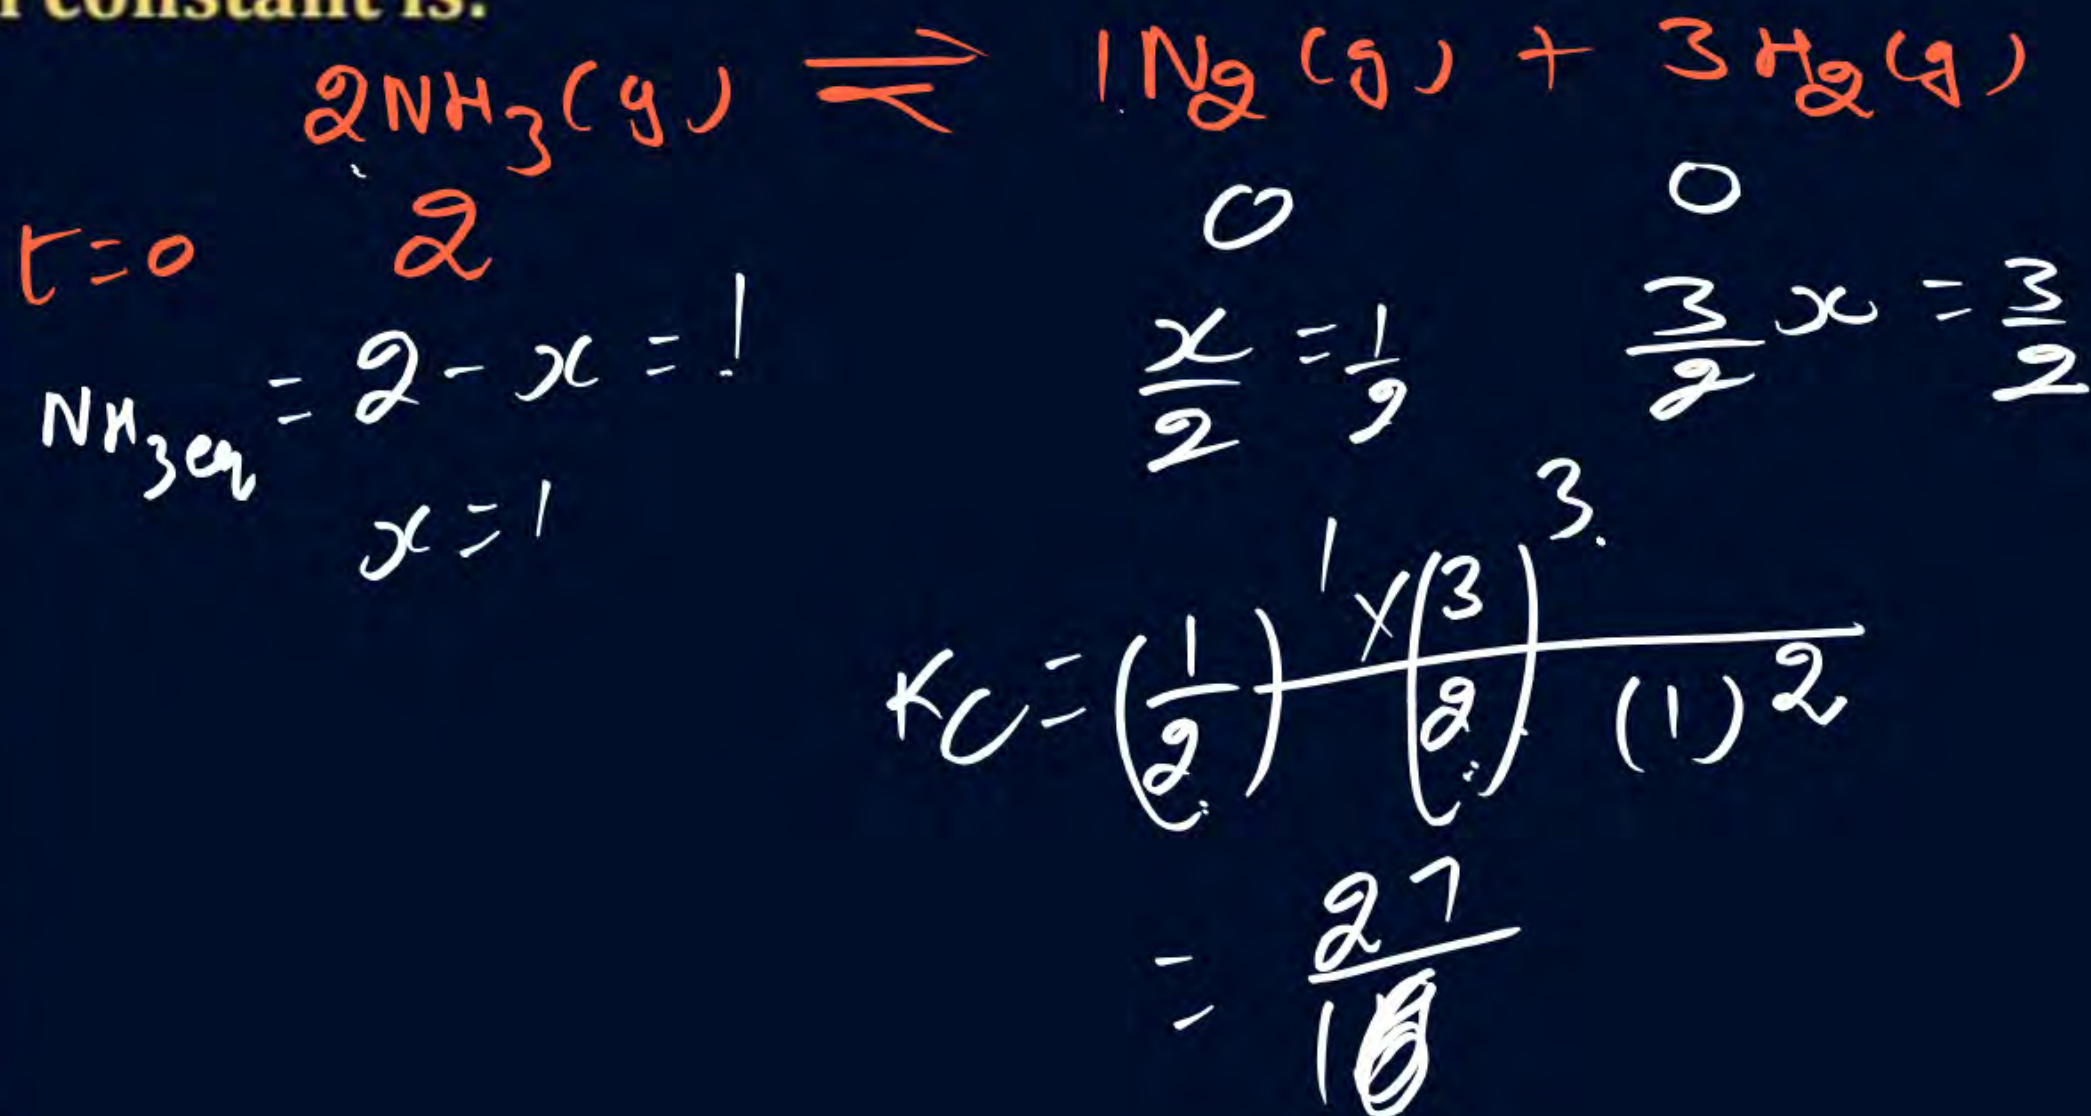 constant is:
2NH₃(g) ⇌ 1N₂(g) + 3H₂(g)
t=0 2 0 0
NH₃eq = 2 - x = 1 x/2 = 1/2 3/2 x = 3/2
x = 1
Kc = (1/2)¹ × (3/2)³ / (1)²
= 27/16